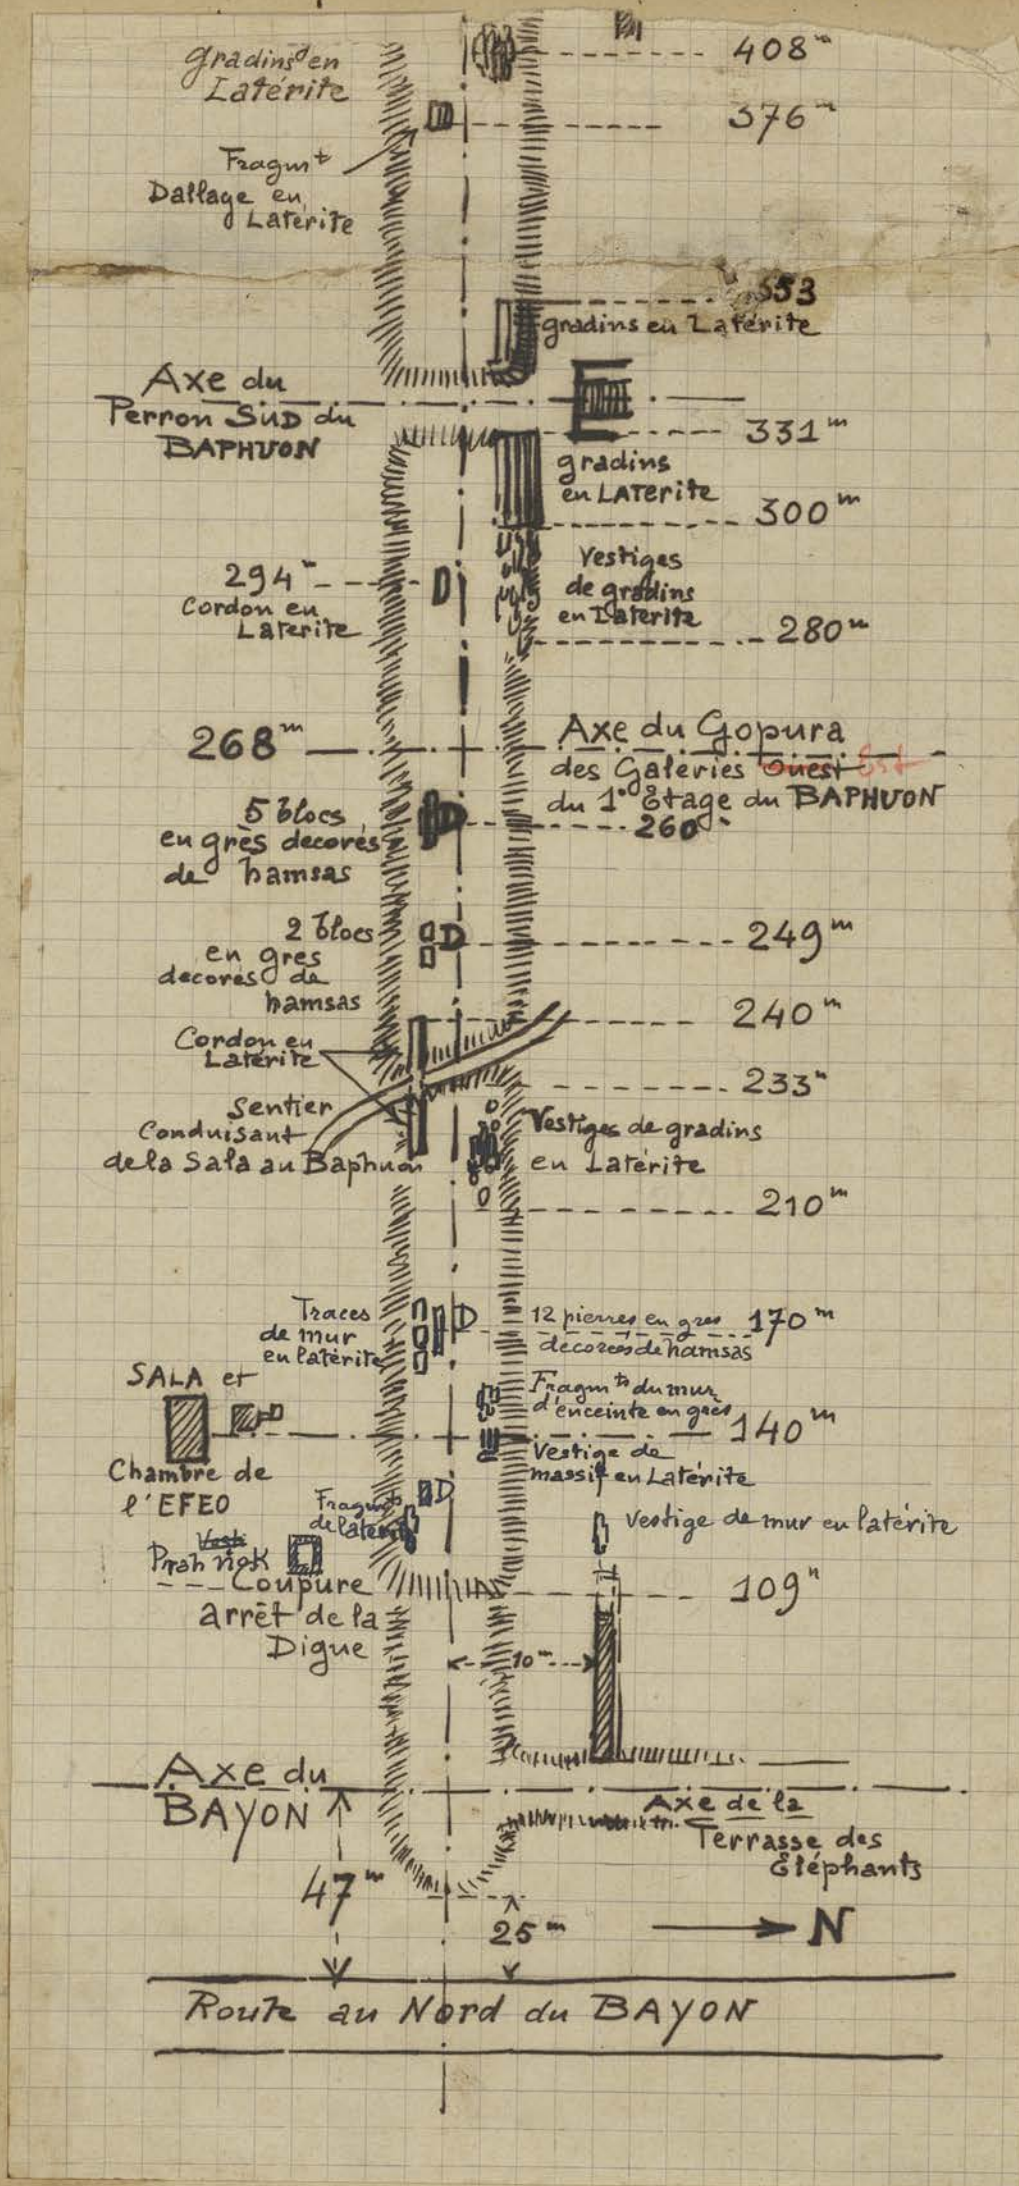 408m
gradins en
Latérite
376m
Fragmt
Dallage en
Latérite
353
gradins en Latérite
Axe du
Perron SUD du
BAPHUON
331m
gradins
en LATerite
300m
Vestiges
de gradins
en Laterite
294m
Cordon en
Laterite
280m
268m
Axe du Gopura
des Galeries Ouest Est
du 1° Etage du BAPHUON
260
5 blocs
en grès decorés
de hamsas
2 blocs
en gres
decorés de
hamsas
249m
240m
Cordon en
Latérite
233m
Sentier
Conduisant
de la Sala au Baphuon
Vestiges de gradins
en Latérite
210m
Traces
de mur
en latérite
12 pierres en gres
décorées de hamsas
170m
SALA et
Chambre de
l'EFEO
Fragmts du mur
d'enceinte en grès
140m
Vestige de
massif en Latérite
Fragmts
de laterite
Vestige de mur en latérite
Vesti
Prah
Coupure
arrêt de la
Digue
109m
10m
Axe du
BAYON
Axe de la
Terrasse des
Eléphants
47m
25m
N
Route au Nord du BAYON